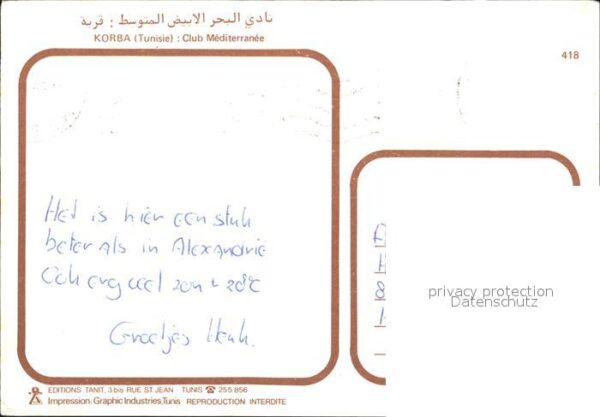 نادي البحر الابيض المتوسط : قربة
KORBA (Tunisie) : Club Méditerranée
418
Het is hier een stuk
beter als in Alexandrie
Ook erg veel zon ± 28°C
Groetjes Henk.
privacy protection
Datenschutz
EDITIONS TANIT, 3 bis RUE ST JEAN TUNIS ☎ 255 856
Impression: Graphic Industries, Tunis REPRODUCTION INTERDITE